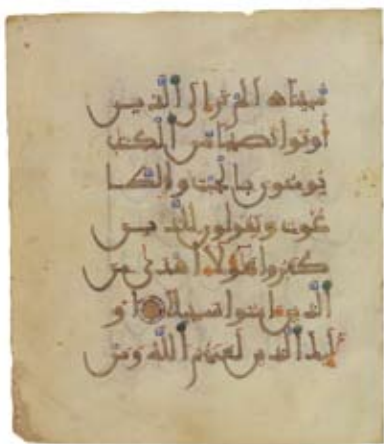 مبينا ۝ الم تر الى الذين
اوتوا نصيبا من الكتب
يومنون بالجبت والطا
غوت ويقولون للذين
كفروا هولا اهدى من
الذين امنوا سبيلا ۝ او
لىك الذين لعنهم الله ومن